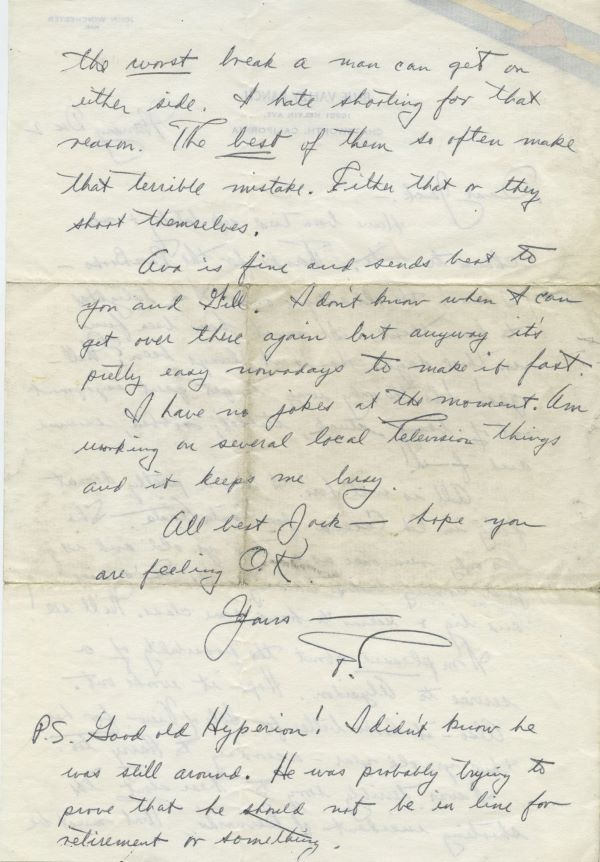 the worst break a man can get on
either side. I hate shooting for that
reason. The best of them so often make
that terrible mistake. Either that or they
shoot themselves.
Ava is fine and sends best to
you and Gill. I don't know when I can
get over there again but anyway it's
pretty easy nowadays to make it fast.
I have no jokes at the moment. Am
working on several local Television things
and it keeps me busy.
All best Jack — hope you
are feeling O.K.
Yours —
P.S. Good old Hyperion! I didn't know he
was still around. He was probably trying to
prove that he should not be in line for
retirement or something.